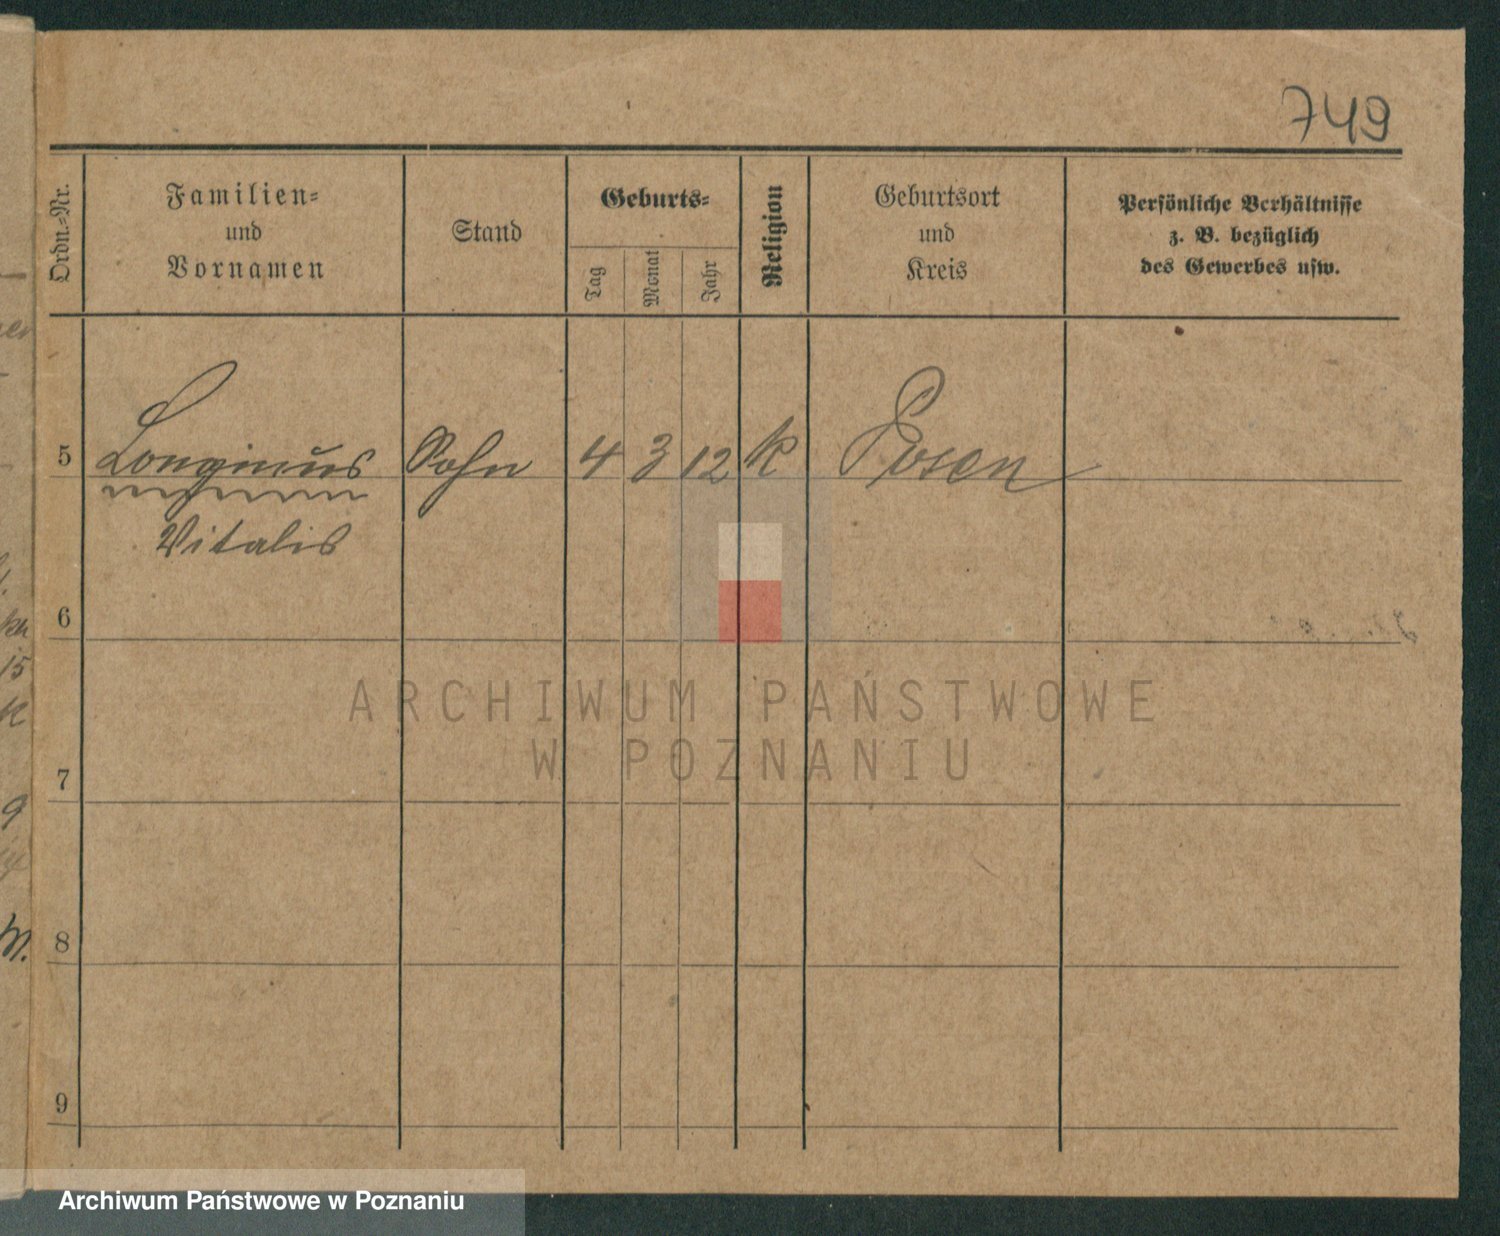 749
Ordn.-Nr.
Familien-
und
Vornamen
Stand
Geburts-
Tag
Monat
Jahr
Religion
Geburtsort
und
Kreis
Persönliche Verhältnisse
z. B. bezüglich
des Gewerbes usw.
5 Longinus Sohn 4 3 12 k Posen
Vitalis
6
7
8
9
15
9
ARCHIWUM PAŃSTWOWE
W POZNANIU
Archiwum Państwowe w Poznaniu